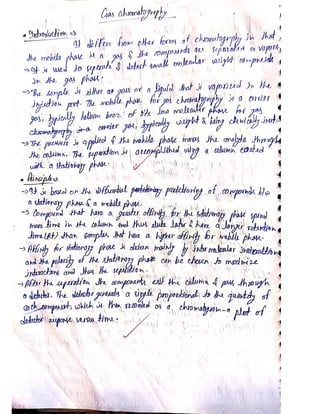 Gas Chromatography
• Introduction :→
It differs from other form of chromatography in that,
the mobile phase is a gas & the components are separated as vapors.
→ It is used to separate & detect small molecular weight compounds
in the gas phase.
→ The sample is either a gas or a liquid that is vaporized in the
injection port. The mobile phase for gas chromatography is a carrier
gas, typically helium becoz of its low molecular weight & being chemically inert
→ The pressure is applied & the mobile phase moves the analyte through
the column. The separation is accomplished using a column coated
with a stationary phase.
• Principle :→
→ It is based on the differential partitioning of compounds b/w
a stationary phase & a mobile phase.
→ Compound that have a greater affinity for the stationary phase spend
more time in the column and thus elute later & have a longer retention
time (Rt) than samples that have a higher affinity for mobile phase.
→ Affinity for stationary phase is driven mainly by intermolecular interactions
and the polarity of the stationary phase can be chosen to maximize
interactions and thus the separation.
→ After the separation the components exit the column & pass through
a detector. The detector generates a signal proportional to the quantity of
each component, which is then recorded as a chromatogram - a plot of
detector response versus time.